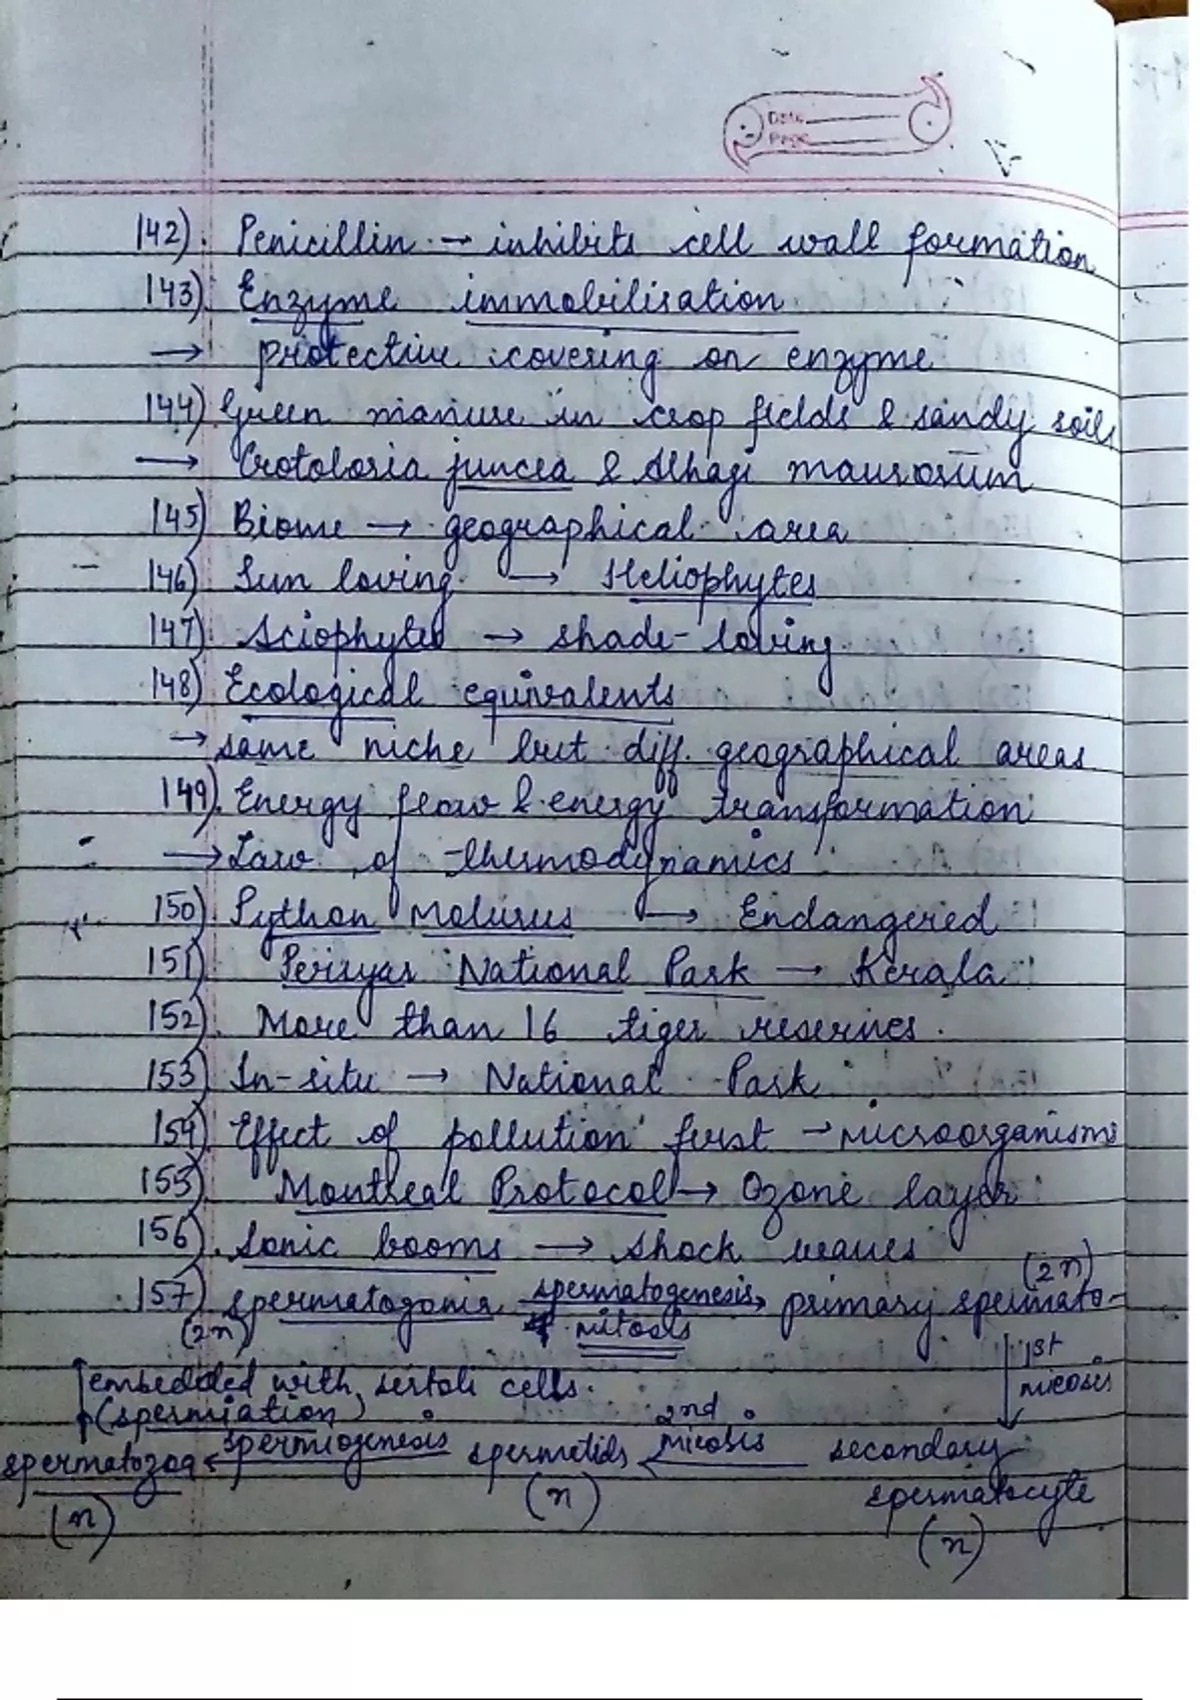 Date
Page
142) Penicillin → inhibits cell wall formation
143) Enzyme immobilisation
→ protective covering on enzyme
144) Green manure in crop fields & sandy soils
→ Crotoloria juncea & Alhagi maurorum
145) Biome → geographical area
146) Sun loving → Heliophytes
147) Sciophytes → shade-loving
148) Ecological equivalents
→ same niche but diff. geographical areas
149) Energy flow & energy transformation
→ Law of thermodynamics
150) Python Molurus → Endangered
151) Periyar National Park → Kerala
152) More than 16 tiger reserves.
153) In-situ → National Park
154) Effect of pollution first → microorganisms
155) Montreal Protocol → Ozone layer
156) Sonic booms → shock waves
(2n)
157) spermatogonia spermatogenesis → primary spermato-
(2n) mitosis
1st
embedded with sertoli cells. meiosis
(spermiation) 2nd
spermatozoa ← spermiogenesis spermatids ← meiosis secondary
(n) (n) spermatocyte
(n)